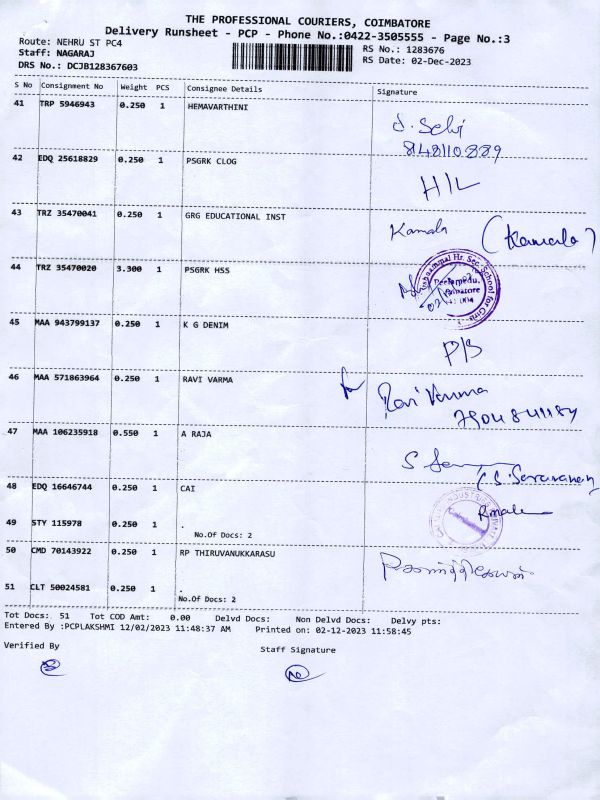 THE PROFESSIONAL COURIERS, COIMBATORE
Delivery Runsheet - PCP - Phone No.:0422-3505555 - Page No.:3
Route: NEHRU ST PC4 RS No.: 1283676
Staff: NAGARAJ RS Date: 02-Dec-2023
DRS No.: DCJB128367603
S No Consignment No Weight PCS Consignee Details Signature
41 TRP 5946943 0.250 1 HEMAVARTHINI
J. Selvi
8148110889
42 EDQ 25618829 0.250 1 PSGRK CLOG
H/L
43 TRZ 35470041 0.250 1 GRG EDUCATIONAL INST
Kamala (Kamala)
44 TRZ 35470020 3.300 1 PSGRK HSS
Hr. Sec. School for Girls
Peelamedu,
Coimbatore
45 MAA 943799137 0.250 1 K G DENIM
P/B
46 MAA 571863964 0.250 1 RAVI VARMA
for Ravi Varma
47 MAA 106235918 0.550 1 A RAJA
(S. Saravanan)
48 EDQ 16646744 0.250 1 CAI
49 STY 115978 0.250 1 .
No.Of Docs: 2
50 CMD 70143922 0.250 1 RP THIRUVANUKKARASU
51 CLT 50024581 0.250 1 .
No.Of Docs: 2
Tot Docs: 51 Tot COD Amt: 0.00 Delvd Docs: Non Delvd Docs: Delvy pts:
Entered By :PCPLAKSHMI 12/02/2023 11:48:37 AM Printed on: 02-12-2023 11:58:45
Verified By Staff Signature